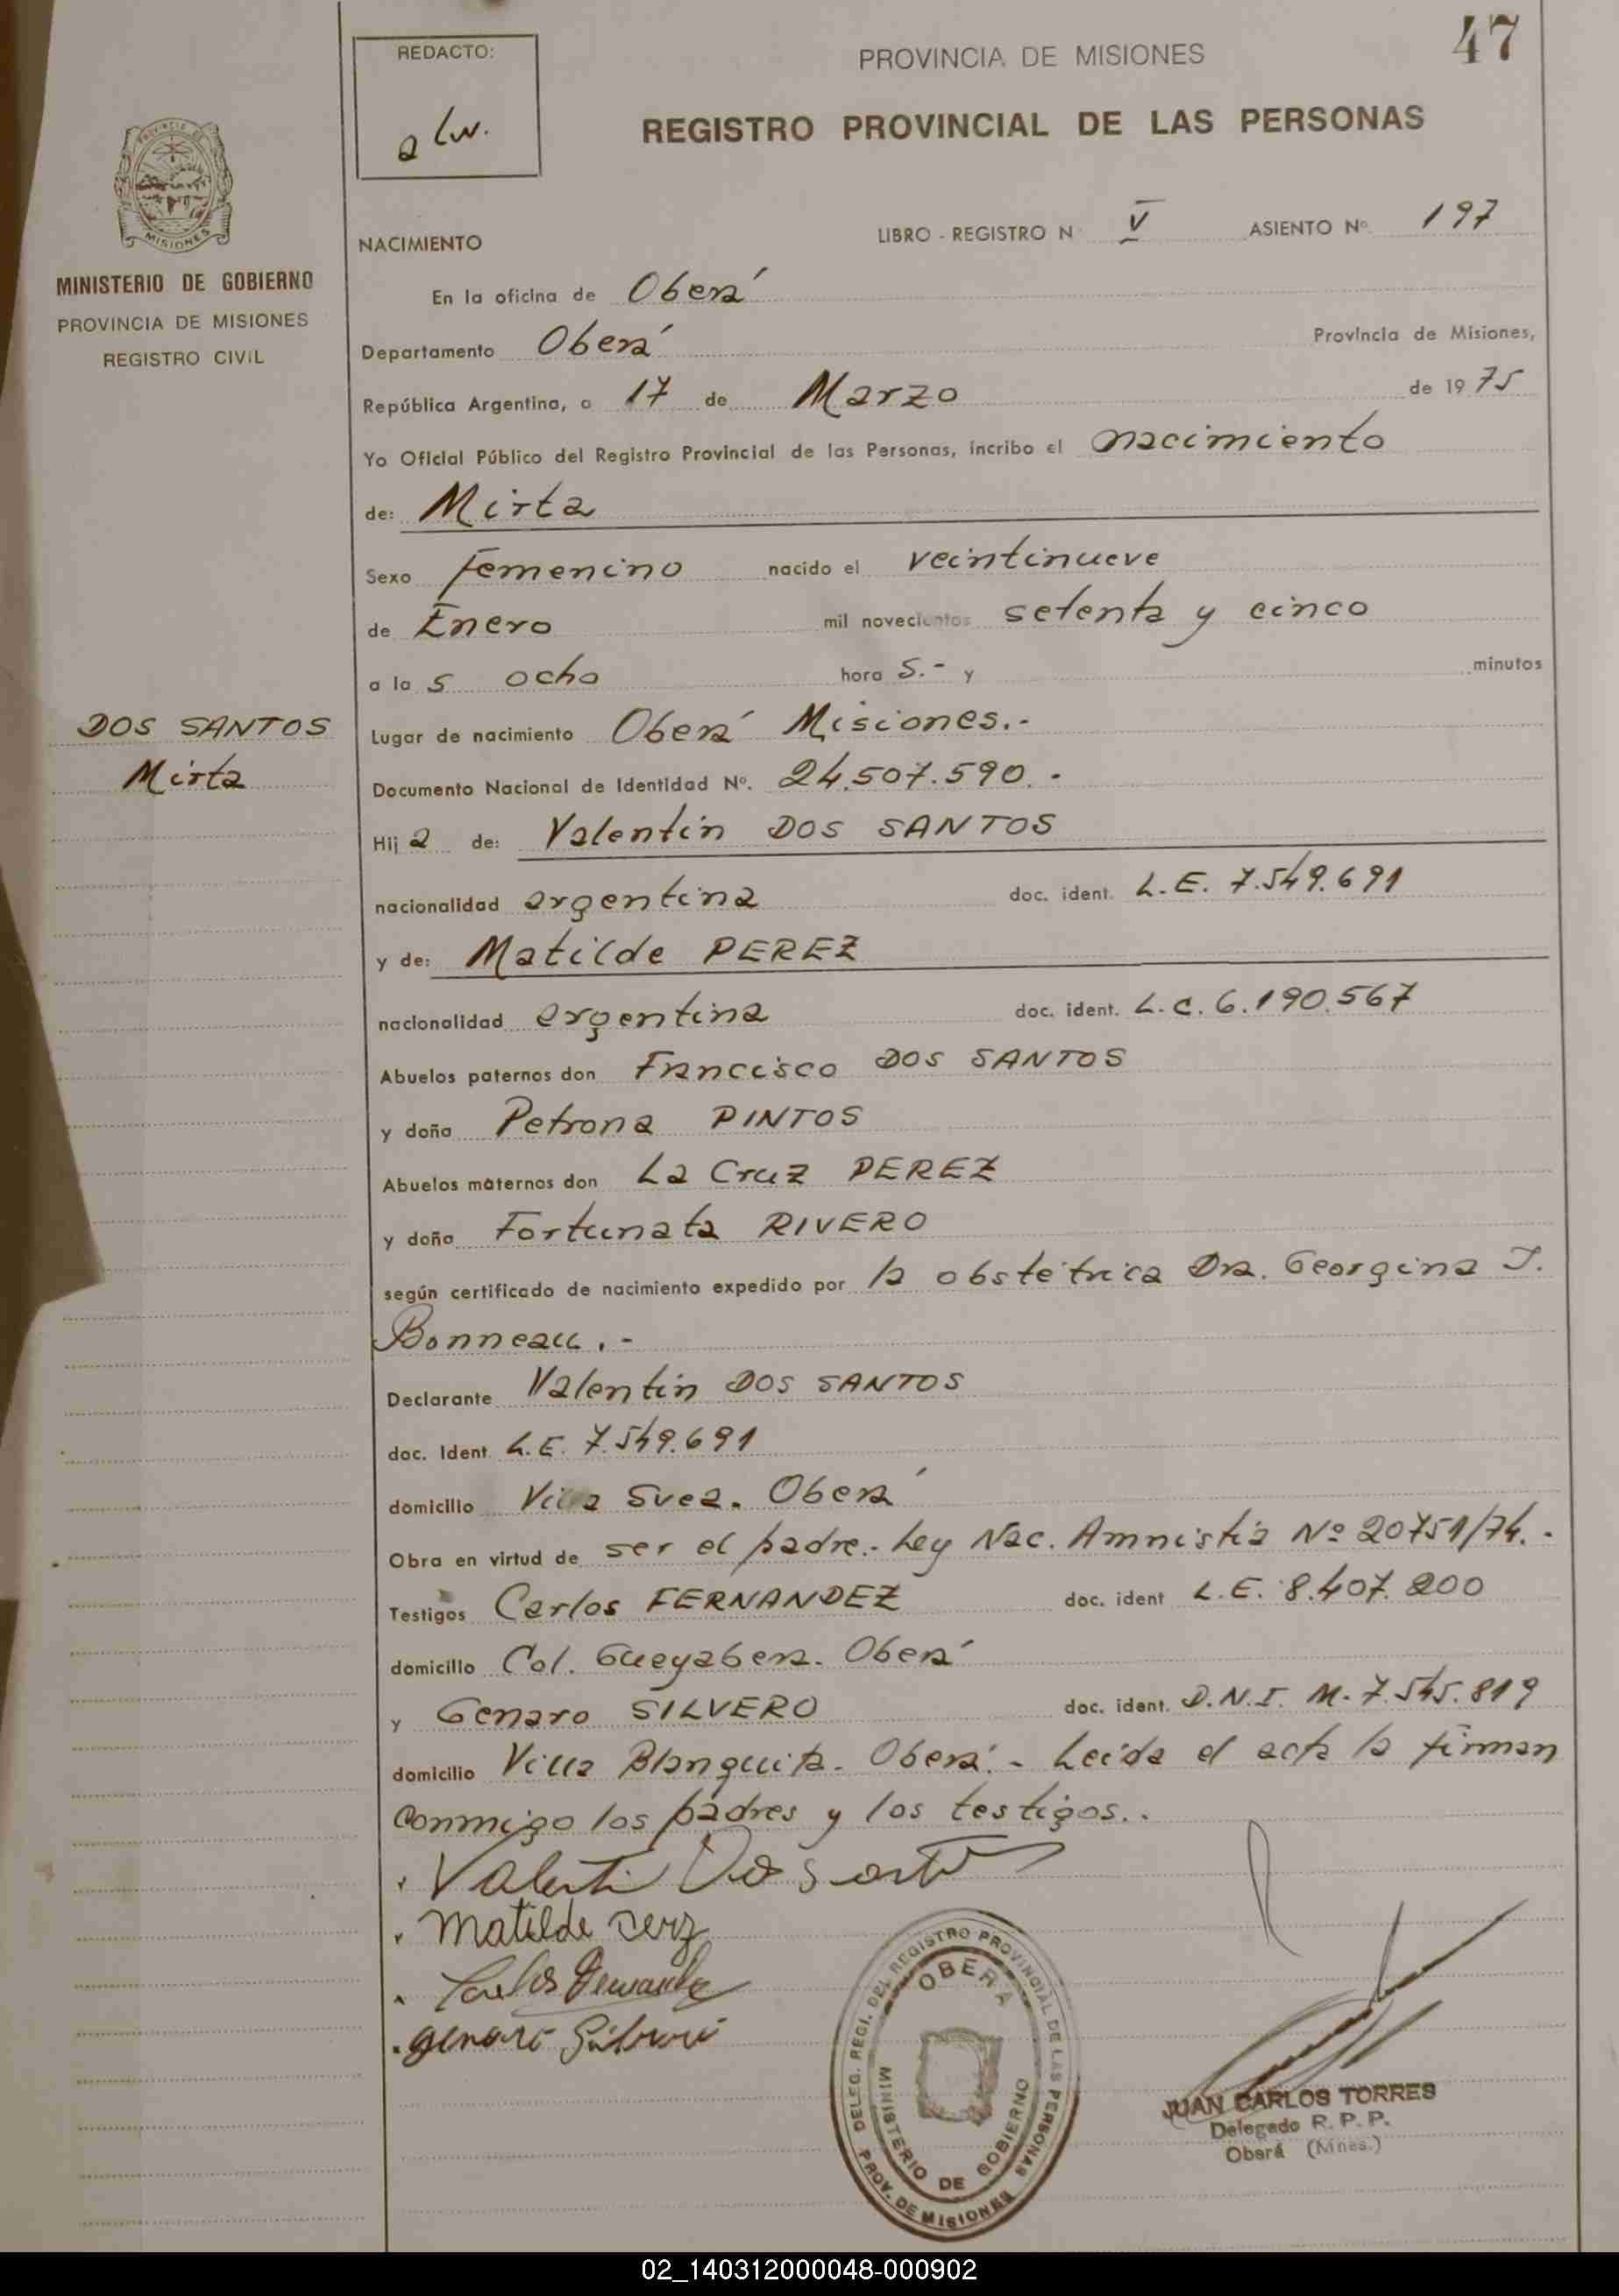 47
REDACTO:
alw.
PROVINCIA DE MISIONES
REGISTRO PROVINCIAL DE LAS PERSONAS
PROVINCIA DE
MISIONES
MINISTERIO DE GOBIERNO
PROVINCIA DE MISIONES
REGISTRO CIVIL
NACIMIENTO LIBRO - REGISTRO N V ASIENTO Nº 197
En la oficina de Oberá
Departamento Oberá Provincia de Misiones,
República Argentina, a 17 de Marzo de 1975
Yo Oficial Público del Registro Provincial de las Personas, incribo el nacimiento
de: Mirta
Sexo femenino nacido el veintinueve
de Enero mil novecientos setenta y cinco
a la s ocho hora s.- y minutos
DOS SANTOS
Mirta
Lugar de nacimiento Oberá Misiones.-
Documento Nacional de Identidad Nº. 24.507.590.-
Hij a de: Valentín DOS SANTOS
nacionalidad argentina doc. ident. L.E. 7.549.691
y de: Matilde PEREZ
nacionalidad argentina doc. ident. L.C. 6.190.567
Abuelos paternos don Francisco DOS SANTOS
y doña Petrona PINTOS
Abuelos maternos don La Cruz PEREZ
y doña Fortunata RIVERO
según certificado de nacimiento expedido por la obstétrica Dra. Georgina J.
Bonneau.-
Declarante Valentín DOS SANTOS
doc. Ident. L.E. 7.549.691
domicilio Villa Svea. Oberá
Obra en virtud de ser el padre.- Ley Nac. Amnistía Nº 20751/74.-
Testigos Carlos FERNANDEZ doc. ident L.E. 8.407.200
domicilio Col. Gueyabera. Oberá
y Genaro SILVERO doc. ident. D.N.I. M. 7.545.819
domicilio Villa Blanquita. Oberá.- Leída el acta la firman
conmigo los padres y los testigos..
Valentin Dos Santos
Matilde Perez
Carlos Fernandez
Genaro Silvero
DELEG. REGI. DEL REGISTRO PROVINCIAL DE LAS PERSONAS
OBERA
MINISTERIO DE GOBIERNO
PROV. DE MISIONES
JUAN CARLOS TORRES
Delegado R. P. P.
Oberá (Mnes.)
02_140312000048-000902